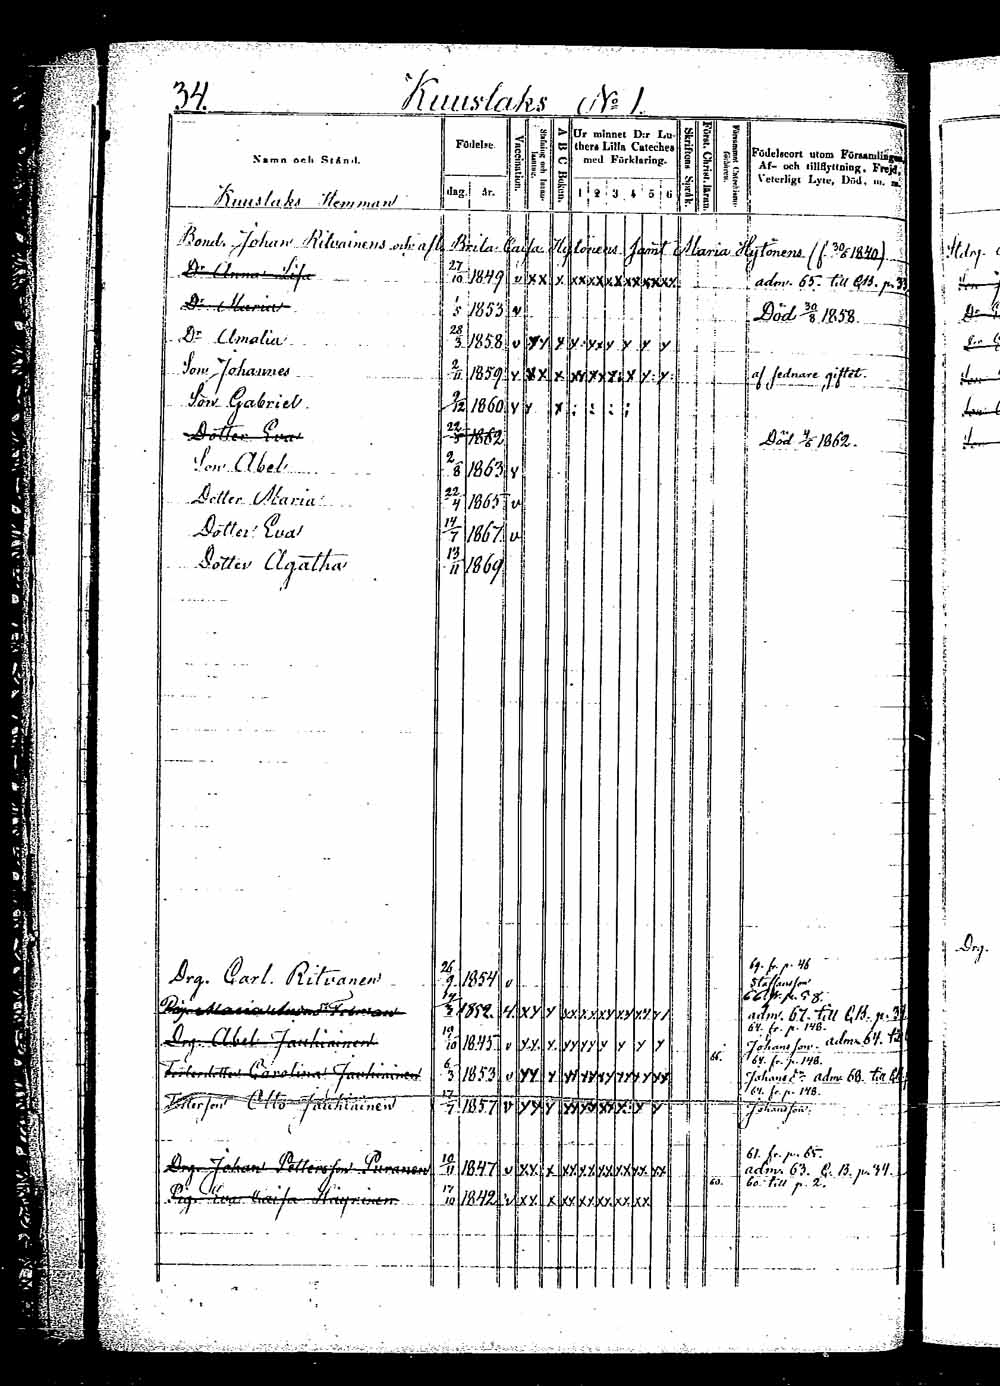 34.
Kuuslaks No 1.
Namn och Stånd.
Födelse.
dag. år.
Vaccination.
A B C Boken.
Ur minnet D:r Lu-
thers Lilla Cateches
med Förklaring.
1 2 3 4 5 6
Skriftens Språk.
Först. Christ. läran.
Födelseort utom Församlingen,
Af- och tillflyttning, Frejd,
Veterligt Lyte, Död, m. m.
Kuuslaks Hemman
Bond. Johan Ritvainens och afl. Brita Caisa Hytönens samt Maria Hytönens (f. 30/6 1840)
Dr Anna Lisa 27/10 1849 v x x x x x x x x x x x x x adm. 65. till C.B. p. 33
Dr Maria 1/5 1853 v Död 30/8 1858.
Dr Amalia 28/3 1858 v x y x y y x y y y y
Son Johannes 2/11 1859 v x x x x y x x y x y y af sednare giftet.
Son Gabriel 9/12 1860 v y x
Dotter Eva 22/5 1862 Död 4/6 1862.
Son Abel 2/8 1863 v
Dotter Maria 22/4 1865 v
Dotter Eva 14/7 1867 v
Dotter Agatha 13/11 1869
Drg. Carl Ritvanen 26/9 1854 v
69. fr. p. 46
Staffansson
Pig. Maria 1852 adm. 67. till C.B. p. 34
64. fr. p. 148.
Drg. Abel Jauhiainen 19/10 1845 v x x x Johansson. adm. 64.
64. fr. p. 148.
Carolina Jauhiainen 6/3 1853 v Johansdr adm. 68. till
64. fr. p. 148.
Otto Jauhiainen 17/7 1857 v Johansson.
61. fr. p. 65.
Drg. Johan Pettersson Puranen 19/11 1847 v x x x adm. 63. C.B. p. 34.
60. till p. 2.
Pig. Eva Caisa Häyrinen 17/10 1842 v x x x
Drg.